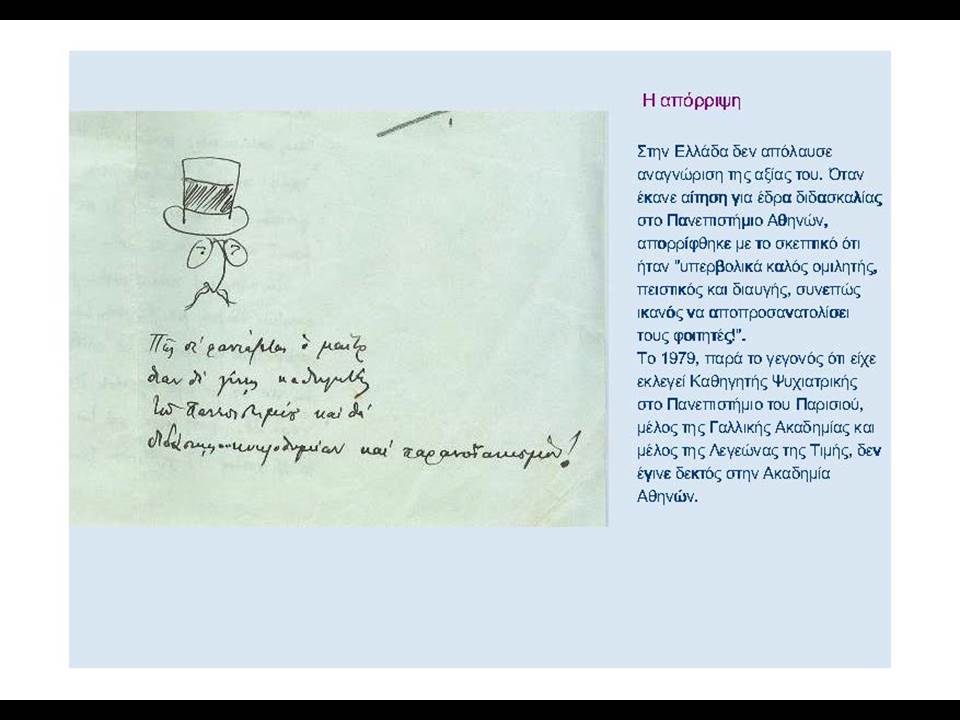 Η απόρριψη
Στην Ελλάδα δεν απόλαυσε
αναγνώριση της αξίας του. Όταν
έκανε αίτηση για έδρα διδασκαλίας
στο Πανεπιστήμιο Αθηνών,
απορρίφθηκε με το σκεπτικό ότι
ήταν "υπερβολικά καλός ομιλητής,
πειστικός και διαυγής, συνεπώς
ικανός να αποπροσανατολίσει
τους φοιτητές!".
Το 1979, παρά το γεγονός ότι είχε
εκλεγεί Καθηγητής Ψυχιατρικής
στο Πανεπιστήμιο του Παρισιού,
μέλος της Γαλλικής Ακαδημίας και
μέλος της Λεγεώνας της Τιμής, δεν
έγινε δεκτός στην Ακαδημία
Αθηνών.
Πῶς σὲ φαντάζεται ὁ μαιτρ
ὅταν θὰ γίνῃς καθηγητὴς
τοῦ Πανεπιστημίου καὶ θὰ
καὶ